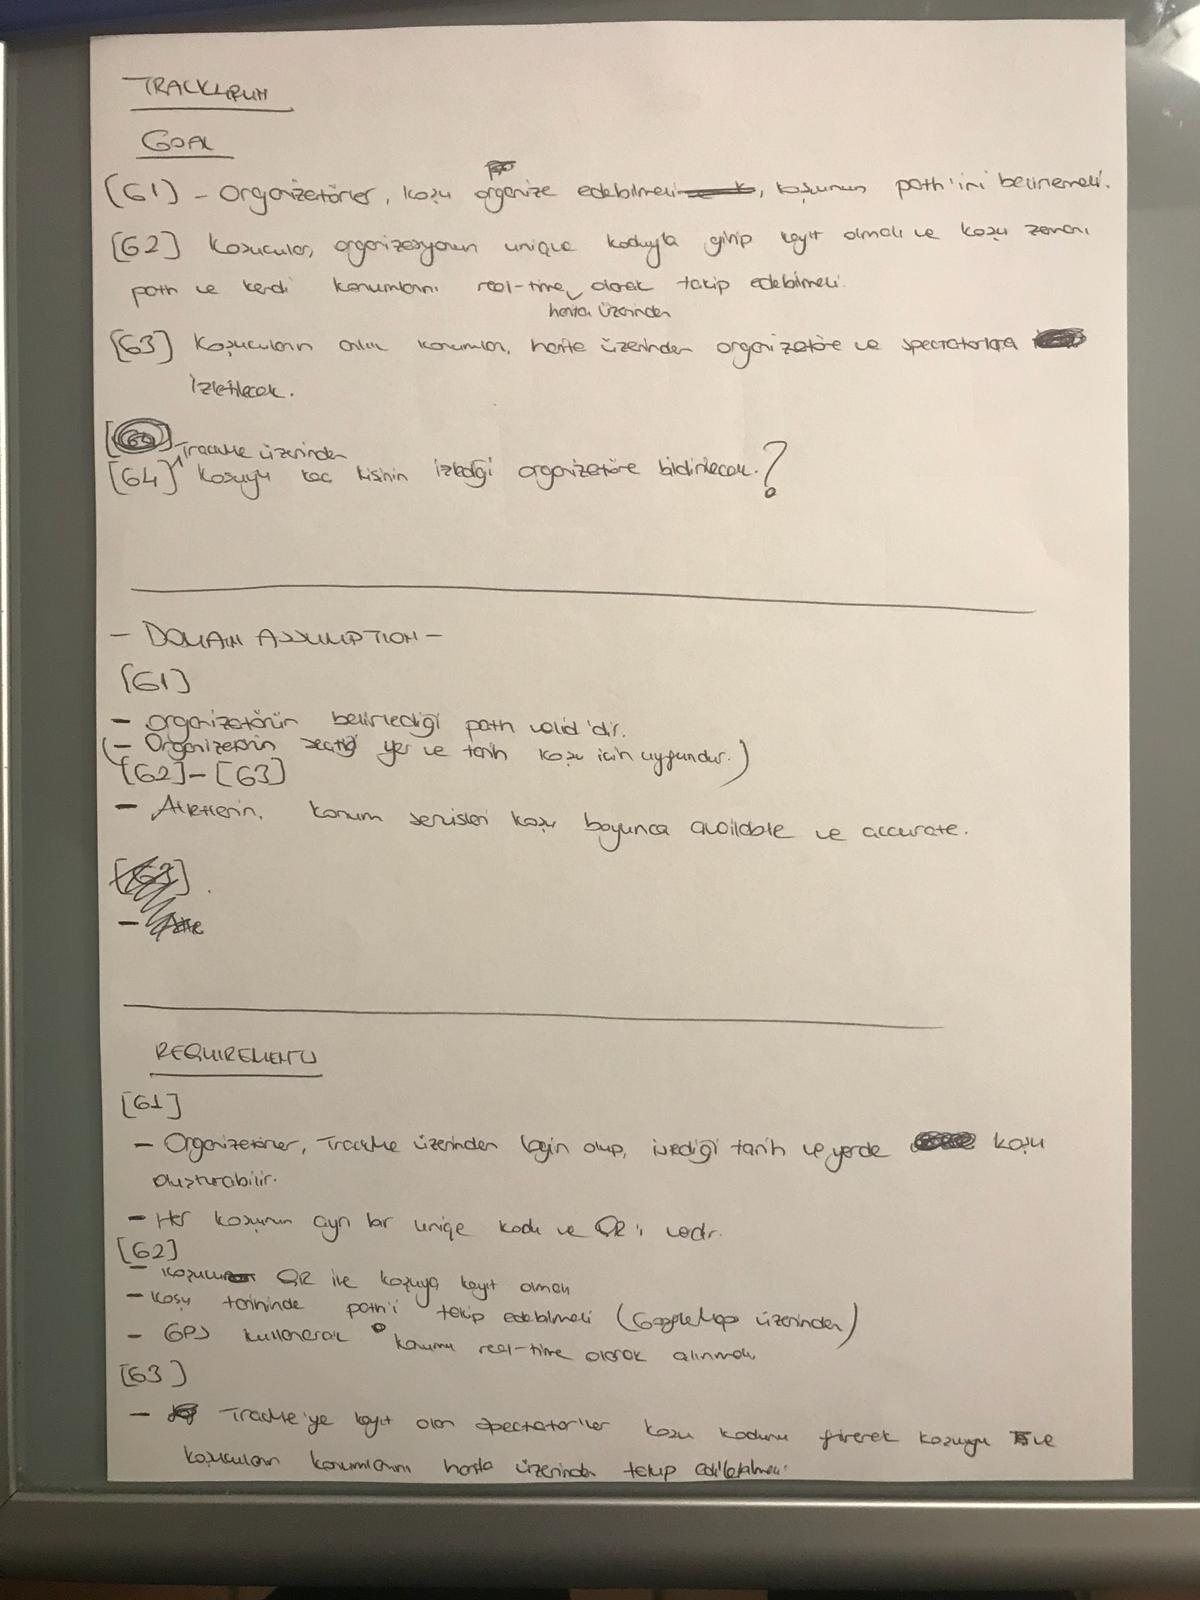 TRACK4RUN
GOAL
[G1] - Organizatörler, koşu organize edebilmeli, koşunun path'ini belirlemeli.
[G2] Koşucular, organizasyonun unique koduyla girip kayıt olmalı ve koşu zamanı
path ve kendi konumlarını real-time olarak takip edebilmeli.
harita üzerinden
[G3] Koşucuların anlık konumları, harita üzerinden organizatöre ve spectatorlara
izletilecek.
TrackMe üzerinden
[G4] Koşuyu kaç kişinin izlediği organizatöre bildirilecek. ?
- DOMAIN ASSUMPTION -
[G1]
- Organizatörün belirlediği path valid'dir.
(- Organizerin seçtiği yer ve tarih koşu için uygundur.)
[G2] - [G3]
- Atletlerin, konum servisleri koşu boyunca available ve accurate.
REQUIREMENTS
[G1]
- Organizatörler, TrackMe üzerinden login olup, istediği tarih ve yerde koşu
oluşturabilir.
- Her koşunun ayrı bir uniqe kodu ve QR'ı vardır.
[G2]
- QR ile koşuya kayıt olmalı
- Koşu tarihinde path'i takip edebilmeli (GoogleMap üzerinden)
- GPS kullanarak konumu real-time olarak alınmalı
[G3]
- TrackMe'ye kayıt olan spectator'ler koşu kodunu girerek koşuyu ve
koşucuların konumlarını harita üzerinden takip edebilmeli.